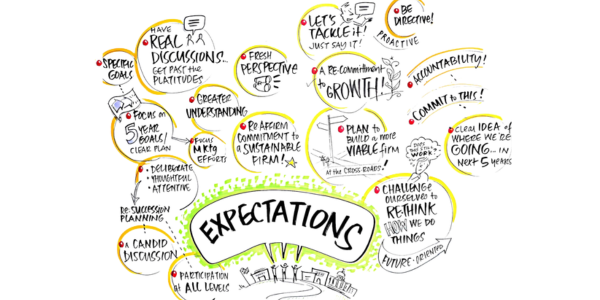 HAVE
REAL
DISCUSSIONS..
GET PAST the
PLATITUDES
SPECIFIC
GOALS
FOCUS on
5
YEAR
GOALS/
CLEAR PLAN
GREATER
UNDERSTANDING
FOCUS
MKtg
EFFORTS
DELIBERATE
THOUGHTFUL
ATTENTIVE
RE: SUCCESSION
PLANNING
A CANDID
DISCUSSION
PARTICIPATION
at ALL LEVELS
FRESH
PERSPECTIVE
REAFFIRM
COMMITMENT
to a
SUSTAINABLE
FIRM!
LET'S
TACKLE it!
JUST SAY IT!
A RE-COMMITMENT
to GROWTH!
PLAN to
BUILD a more
VIABLE FIRM
At the CROSS-ROADS!
BE
DIRECTIVE!
PROACTIVE
ACCOUNTABILITY!
COMMIT to THIS!
CLEAR IDEA of
WHERE WE'RE
GOING... IN
NEXT 5 YEARS
WORK
CHALLENGE
OURSELVES to
RETHINK
HOW WE DO
THINGS
FUTURE-ORIENTED
EXPECTATIONS